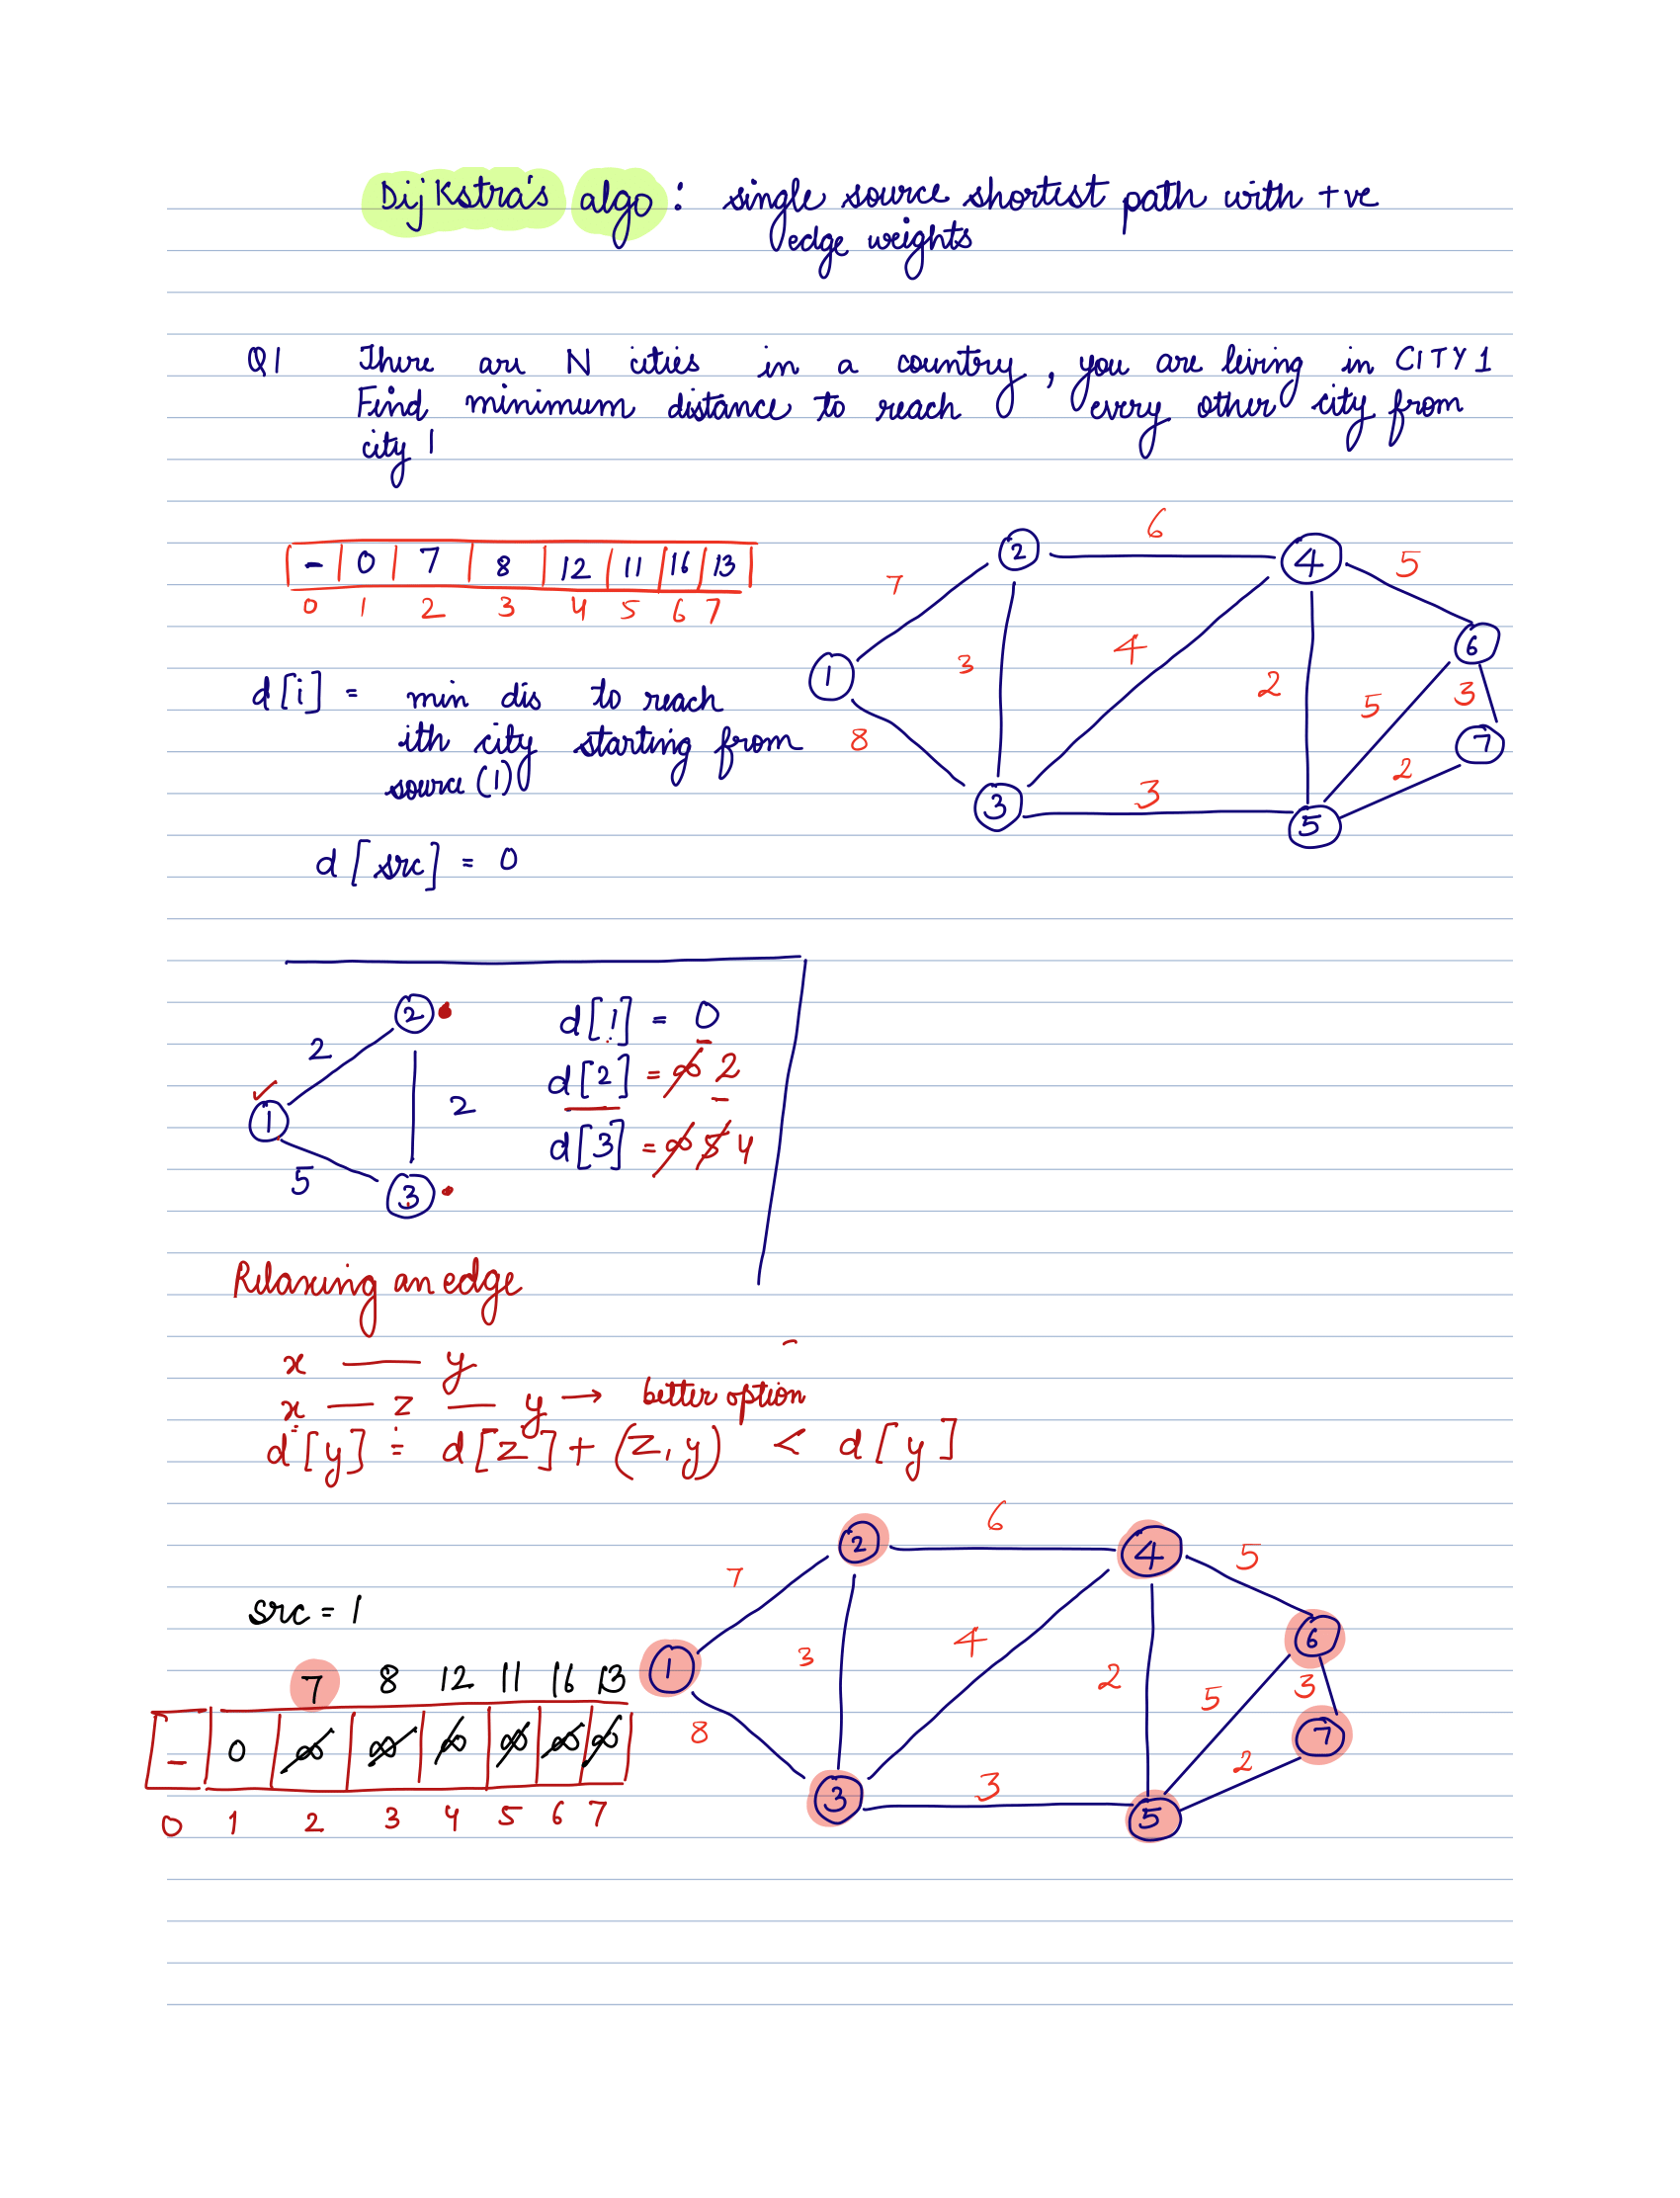 Dijkstra's algo : single source shortest path with +ve
edge weights
Q1 There are N cities in a country, you are living in CITY 1
Find minimum distance to reach every other city from
city 1
- 0 7 8 12 11 16 13
0 1 2 3 4 5 6 7
d[i] = min dis to reach
ith city starting from
source (1)
d[src] = 0
1 2 3 4 5 6 7
7 8 3 6 4 3 2 5 5 3 2
1 2 3
2 5 2
d[1] = 0
d[2] = ∞ 2
d[3] = ∞ 5 4
Relaxing an edge
x — y
x — z — y → better option
d[y] = d[z] + (z,y) < d[y]
src = 1
7 8 12 11 16 13
- 0 ∞ ∞ ∞ ∞ ∞ ∞
0 1 2 3 4 5 6 7
1 2 3 4 5 6 7
7 8 3 6 4 3 2 5 5 3 2